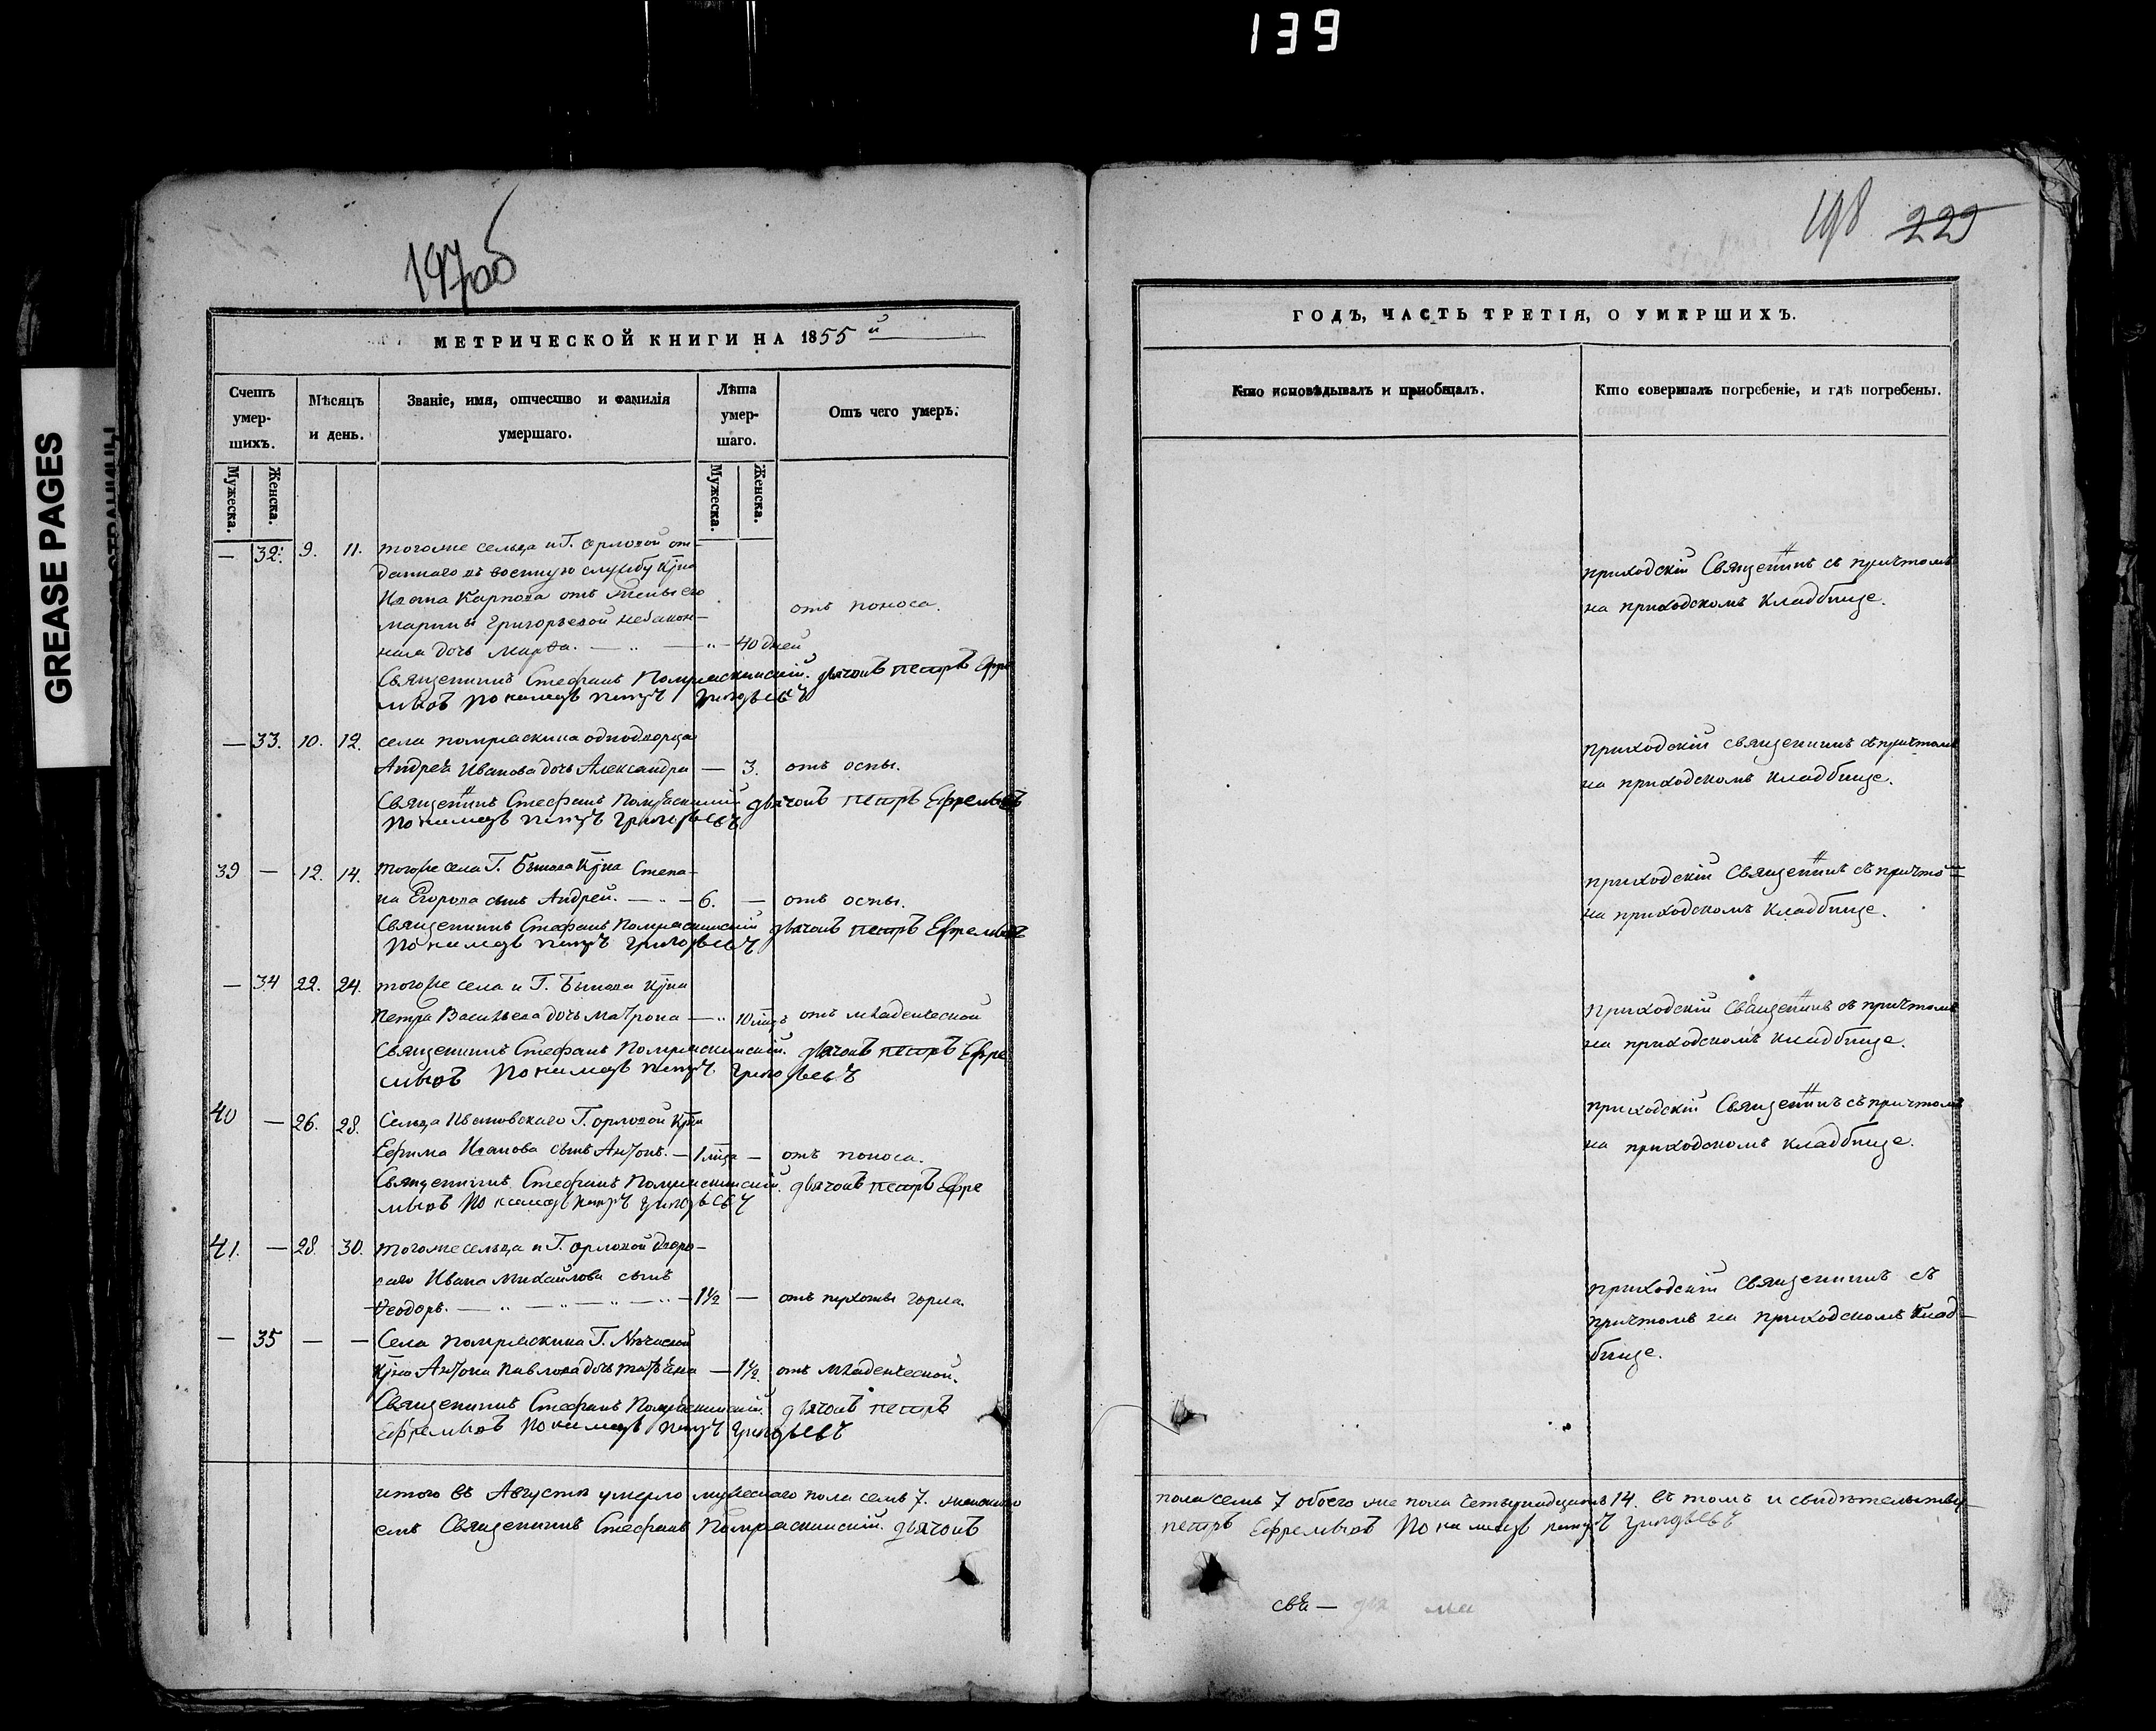 139
GREASE PAGES
197об
МЕТРИЧЕСКОЙ КНИГИ НА 1855й
Счетъ умершихъ.
Мѣсяцъ и день.
Званіе, имя, отчество и фамилія умершаго.
Лѣта умершаго.
Отъ чего умеръ.
Мужеска.
Женска.
Мужеска.
Женска.
— 32. 9. 11. тогоже сельца и Г. Орловой от-
даннаго въ военную службу
Карпова отъ жены его
Марины Григорьевой незакон- отъ поноса.
ная дочь Марѳа. — „ — „ — 40 дней
Священникъ Стефанъ дьячокъ Петръ Ефре
мовъ Пономарь Петръ Григорьевъ
— 33. 10. 12. села однодворца
Андрея Иванова дочь Александра — 3. отъ оспы.
Священникъ Стефанъ дьячокъ Петръ Ефремовъ
Пономарь Петръ Григорьевъ
39 — 12. 14. тогоже села Г. Степа-
на Егорова сынъ Андрей. — „ — 6. — отъ оспы.
Священникъ Стефанъ дьячокъ Петръ Ефремовъ
Пономарь Петръ Григорьевъ
— 34 22. 24. тогоже села и Г.
Петра Васильева дочь Матрона — „ 10 отъ младенческой
Священникъ Стефанъ дьячокъ Петръ Ефре
мовъ Пономарь Петръ Григорьевъ
40 — 26. 28. Сельца Ивановскаго Г. Орловой
Ефима Иванова сынъ Антонъ. — 1 — отъ поноса.
Священникъ Стефанъ дьячокъ Петръ Ефре
мовъ Пономарь Петръ Григорьевъ
41. — 28. 30. тогоже сельца и Г. Орловой дворо-
ваго Ивана Михайлова сынъ
Ѳеодоръ. — „ — „ — „ — 1½ — отъ горла.
— 35 — — Села Г.
Антона Павлова дочь Татьяна — 1½. отъ младенческой.
Священникъ Стефанъ дьячокъ Петръ
Ефремовъ Пономарь Петръ Григорьевъ
итого въ Августѣ умерло мужескаго пола семь 7. женскаго
емъ Священникъ Стефанъ дьячокъ
198 229
ГОДЪ, ЧАСТЬ ТРЕТІЯ, О УМЕРШИХЪ.
Кто исповѣдывалъ и приобщалъ.
Кто совершалъ погребеніе, и гдѣ погребены.
приходскій Священникъ съ причтомъ
на приходскомъ кладбище.
приходскій священникъ съ причтомъ
на приходскомъ кладбище.
приходскій Священникъ съ причто
на приходскомъ кладбище.
приходскій Священникъ съ причтомъ
на приходскомъ кладбище.
приходскій Священникъ съ причтомъ
на приходскомъ кладбище.
приходскій Священникъ съ
причтомъ на приходскомъ клад-
бище.
пола семь 7 обоего же пола четырнадцать 14. въ томъ и свидѣтельству-
Петръ Ефремовъ Пономарь Петръ Григорьевъ